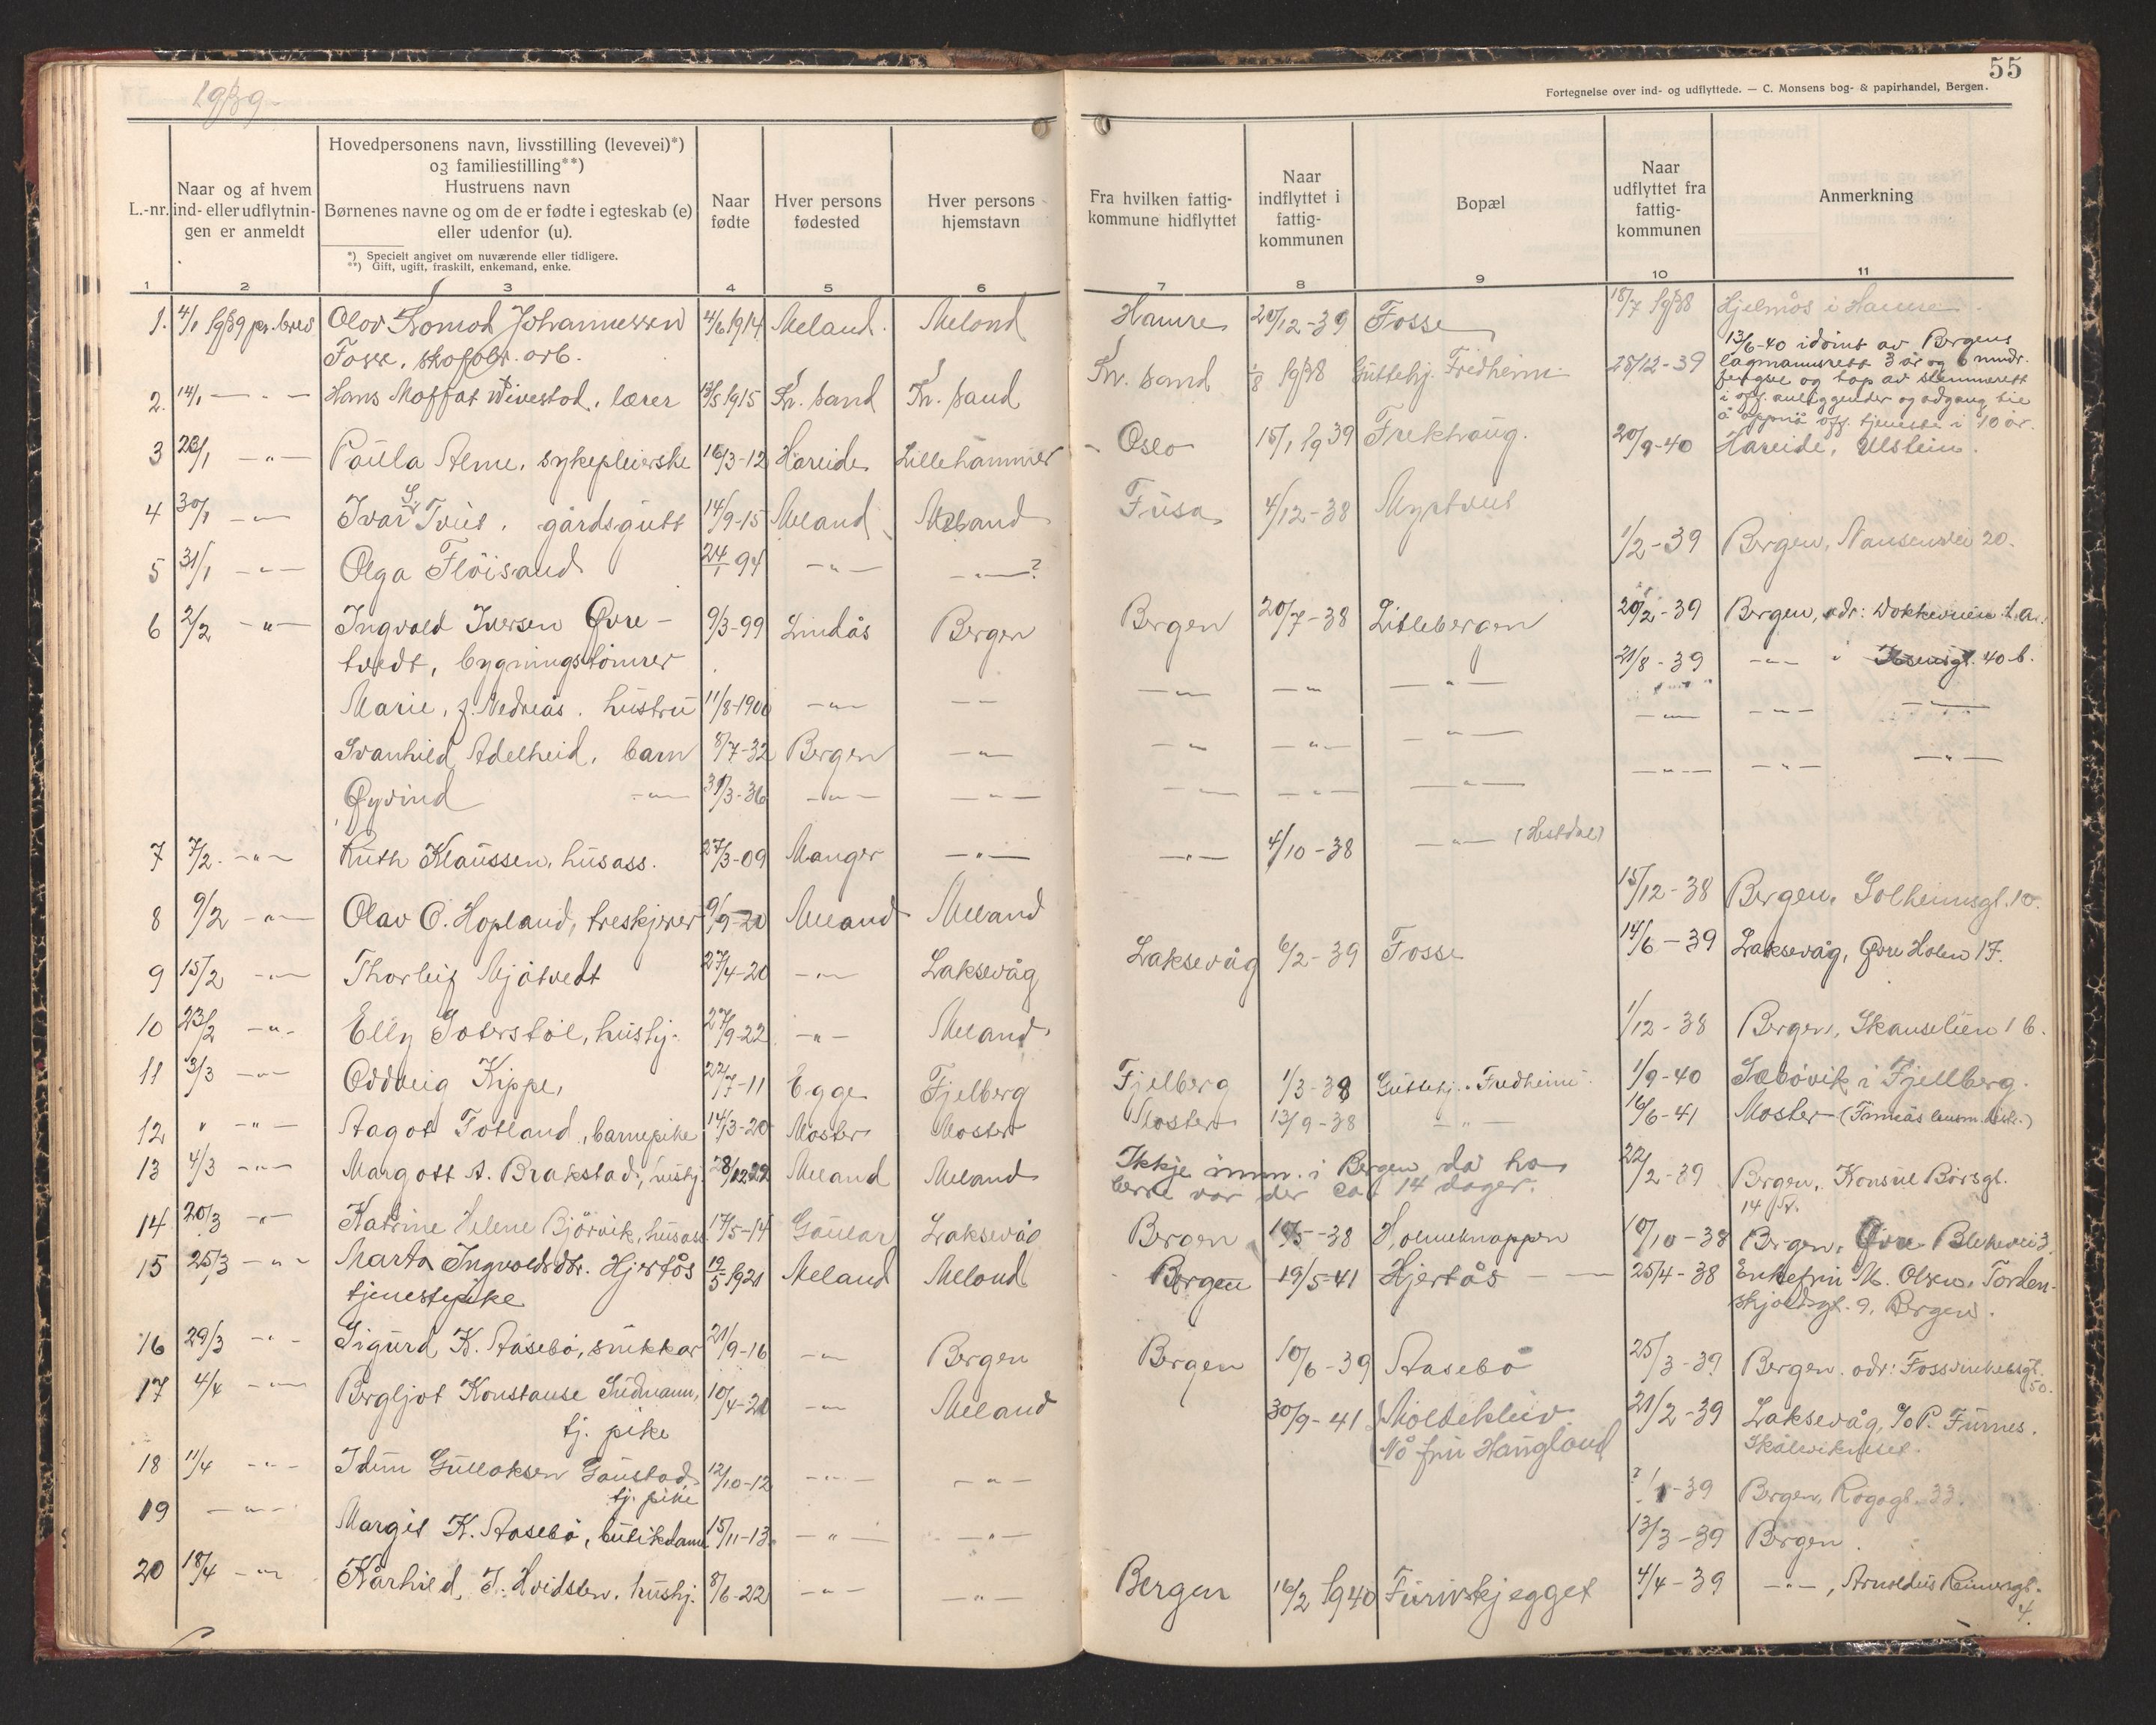 1939
55
Fortegnelse over ind- og udflyttede. — C. Monsens bog- & papirhandel, Bergen.
L.-nr.
Naar og af hvem ind- eller udflytningen er anmeldt
Hovedpersonens navn, livsstilling (levevei)*) og familiestilling**)
Hustruens navn
Børnenes navne og om de er fødte i egteskab (e) eller udenfor (u).
*) Specielt angivet om nuværende eller tidligere.
**) Gift, ugift, fraskilt, enkemand, enke.
Naar fødte
Hver persons fødested
Hver persons hjemstavn
Fra hvilken fattigkommune hidflyttet
Naar indflyttet i fattigkommunen
Bopæl
Naar udflyttet fra fattigkommunen
Anmerkning
1 2 3 4 5 6 7 8 9 10 11
1. 4/1 1939 pr. brev Olov Johannessen 4/6 1914 Meland. Meland Hamre 20/12-39 Fosse 18/7 1938 Hjelmås i Hamre.
Fosse, arb.
2. 14/1 — " — Hans Moffat lærer 13/5 1915 Kr. sand Kr. sand Kr. sand 1/8 1938 Guttehj. Fredheim 28/12-39 13/6-40 idömt av Bergens
lagmannsrett 3 år og 6 mndr.
fengsel og tap av stemmerett
i off. anliggender og adgang til
å oppnå off. tjeneste i 10 år.
3 20/1 — " — Paula Alme, sykepleierske 16/3-12 Hareide Lillehammer Oslo 15/1 1939 Frekhaug. 20/9-40 Hareide, Ulstein.
4 30/1 — " — Ivar S. Tveit, gårdsgutt 14/9-15 Meland Meland Fusa 4/12-38 Myrtveit
5 31/1 — " — Olga Flöisand 24/1 94 — " — — " — ? 1/2-39 Bergen, Nansenvei 20.
6 2/2 — " — Ingvald Iversen Øvre- 9/3-99 Lindås Bergen Bergen 20/7-38 Litlebergen 20/2-39 Bergen, adr: Dokkeveien 2 a.
tvedt, bygningstömrer 21/8-39 — " — i 40 b.
Marie, f. Nedreås. hustru 11/8-1900 — " — — " — — " — — " — — " — — " — — " — — " —
Svanhild Adelheid, barn 8/7-32 Bergen — " — — " — — " — — " — — " — — " — — " —
Øyvind — " — 31/3-36 — " — — " — — " — — " — — " —
7 7/2. — " — Ruth Klaussen, husass. 27/3-09 Manger — " — — " — 4/10-38 — " — (Hestdal)
8 9/2 — " — Olav O. Hopland, treskjerer 9/9-20 Meland Meland 15/12-38 Bergen, Solheimsgt. 10.
9 15/2 — " — Thorleif Mjåtvedt 27/4-20 — " — Laksevåg Laksevåg 6/2-39 Fosse 14/6-39 Laksevåg, Øvre Holen 17.
10 23/2 — " — Elly hushj. 27/9-22 — " — Meland 1/12-38 Bergen, Skanselien 1 b.
11 3/3 — " — Oddveig Kippe, 22/7-11 Egge Fjelberg Fjelberg 1/3-38 Guttehj. Fredheim 1/9-40 Sæbövik i Fjellberg.
12 " — " — Aagot Totland, barnepike 14/3-20 Moster Moster Moster 13/9-38 — " — 16/6-41 Moster (Finnås lensm. distr.)
13 4/3 — " — Margott A. Brakstad, hushj. 28/12 22 Meland Meland Ikkje innm. i Bergen då ho 22/2-39 Bergen, Konsul Børsgt.
berre var der ca 14 dager. 14
14 20/3 — " — Katrine Helene Björvik, husass. 17/5-14 Gaular Laksevåg Bergen 10/5-38 Holmeknappen 10/10-38 Bergen, Øvre Blekevei 3.
15 25/3 — " — Marta Ingvoldsdtr. Hjertås 19/5 1921 Meland Meland Bergen 19/5-41 Hjertås 25/4-38 Enkefru M. Olsen, Torden-
tjenestepike skjoldsgt. 9, Bergen.
16 29/3 — " — Sigurd K. Aasebö, snikkar 21/9-16 — " — Bergen Bergen 10/6-39 Aasebö 25/3-39 Bergen. adr: Fosswinckelsgt.
50.
17 4/4 — " — Bergljot Konstanse 10/4-21 — " — Meland 30/9-41 Moldekleiv. 21/2-39 Laksevåg, c/o P. Furnes.
tj. pike Nå fru Haugland
18 11/4 — " — Idun Gullaksen Gaustad 12/10-12 — " — — " — ?/1-39 Bergen, 33.
tj. pike
19 — " — Margit K. Aasebö, butikdame 15/11-13. — " — — " — 13/3-39 Bergen.
20 18/4 — " — Kårhild J. Hvidsten, hushj. 8/6-22 — " — — " — Bergen 16/2 1940 Fureskjegget 4/4-39 — " —, Arnoldus Reimersgt.
4.